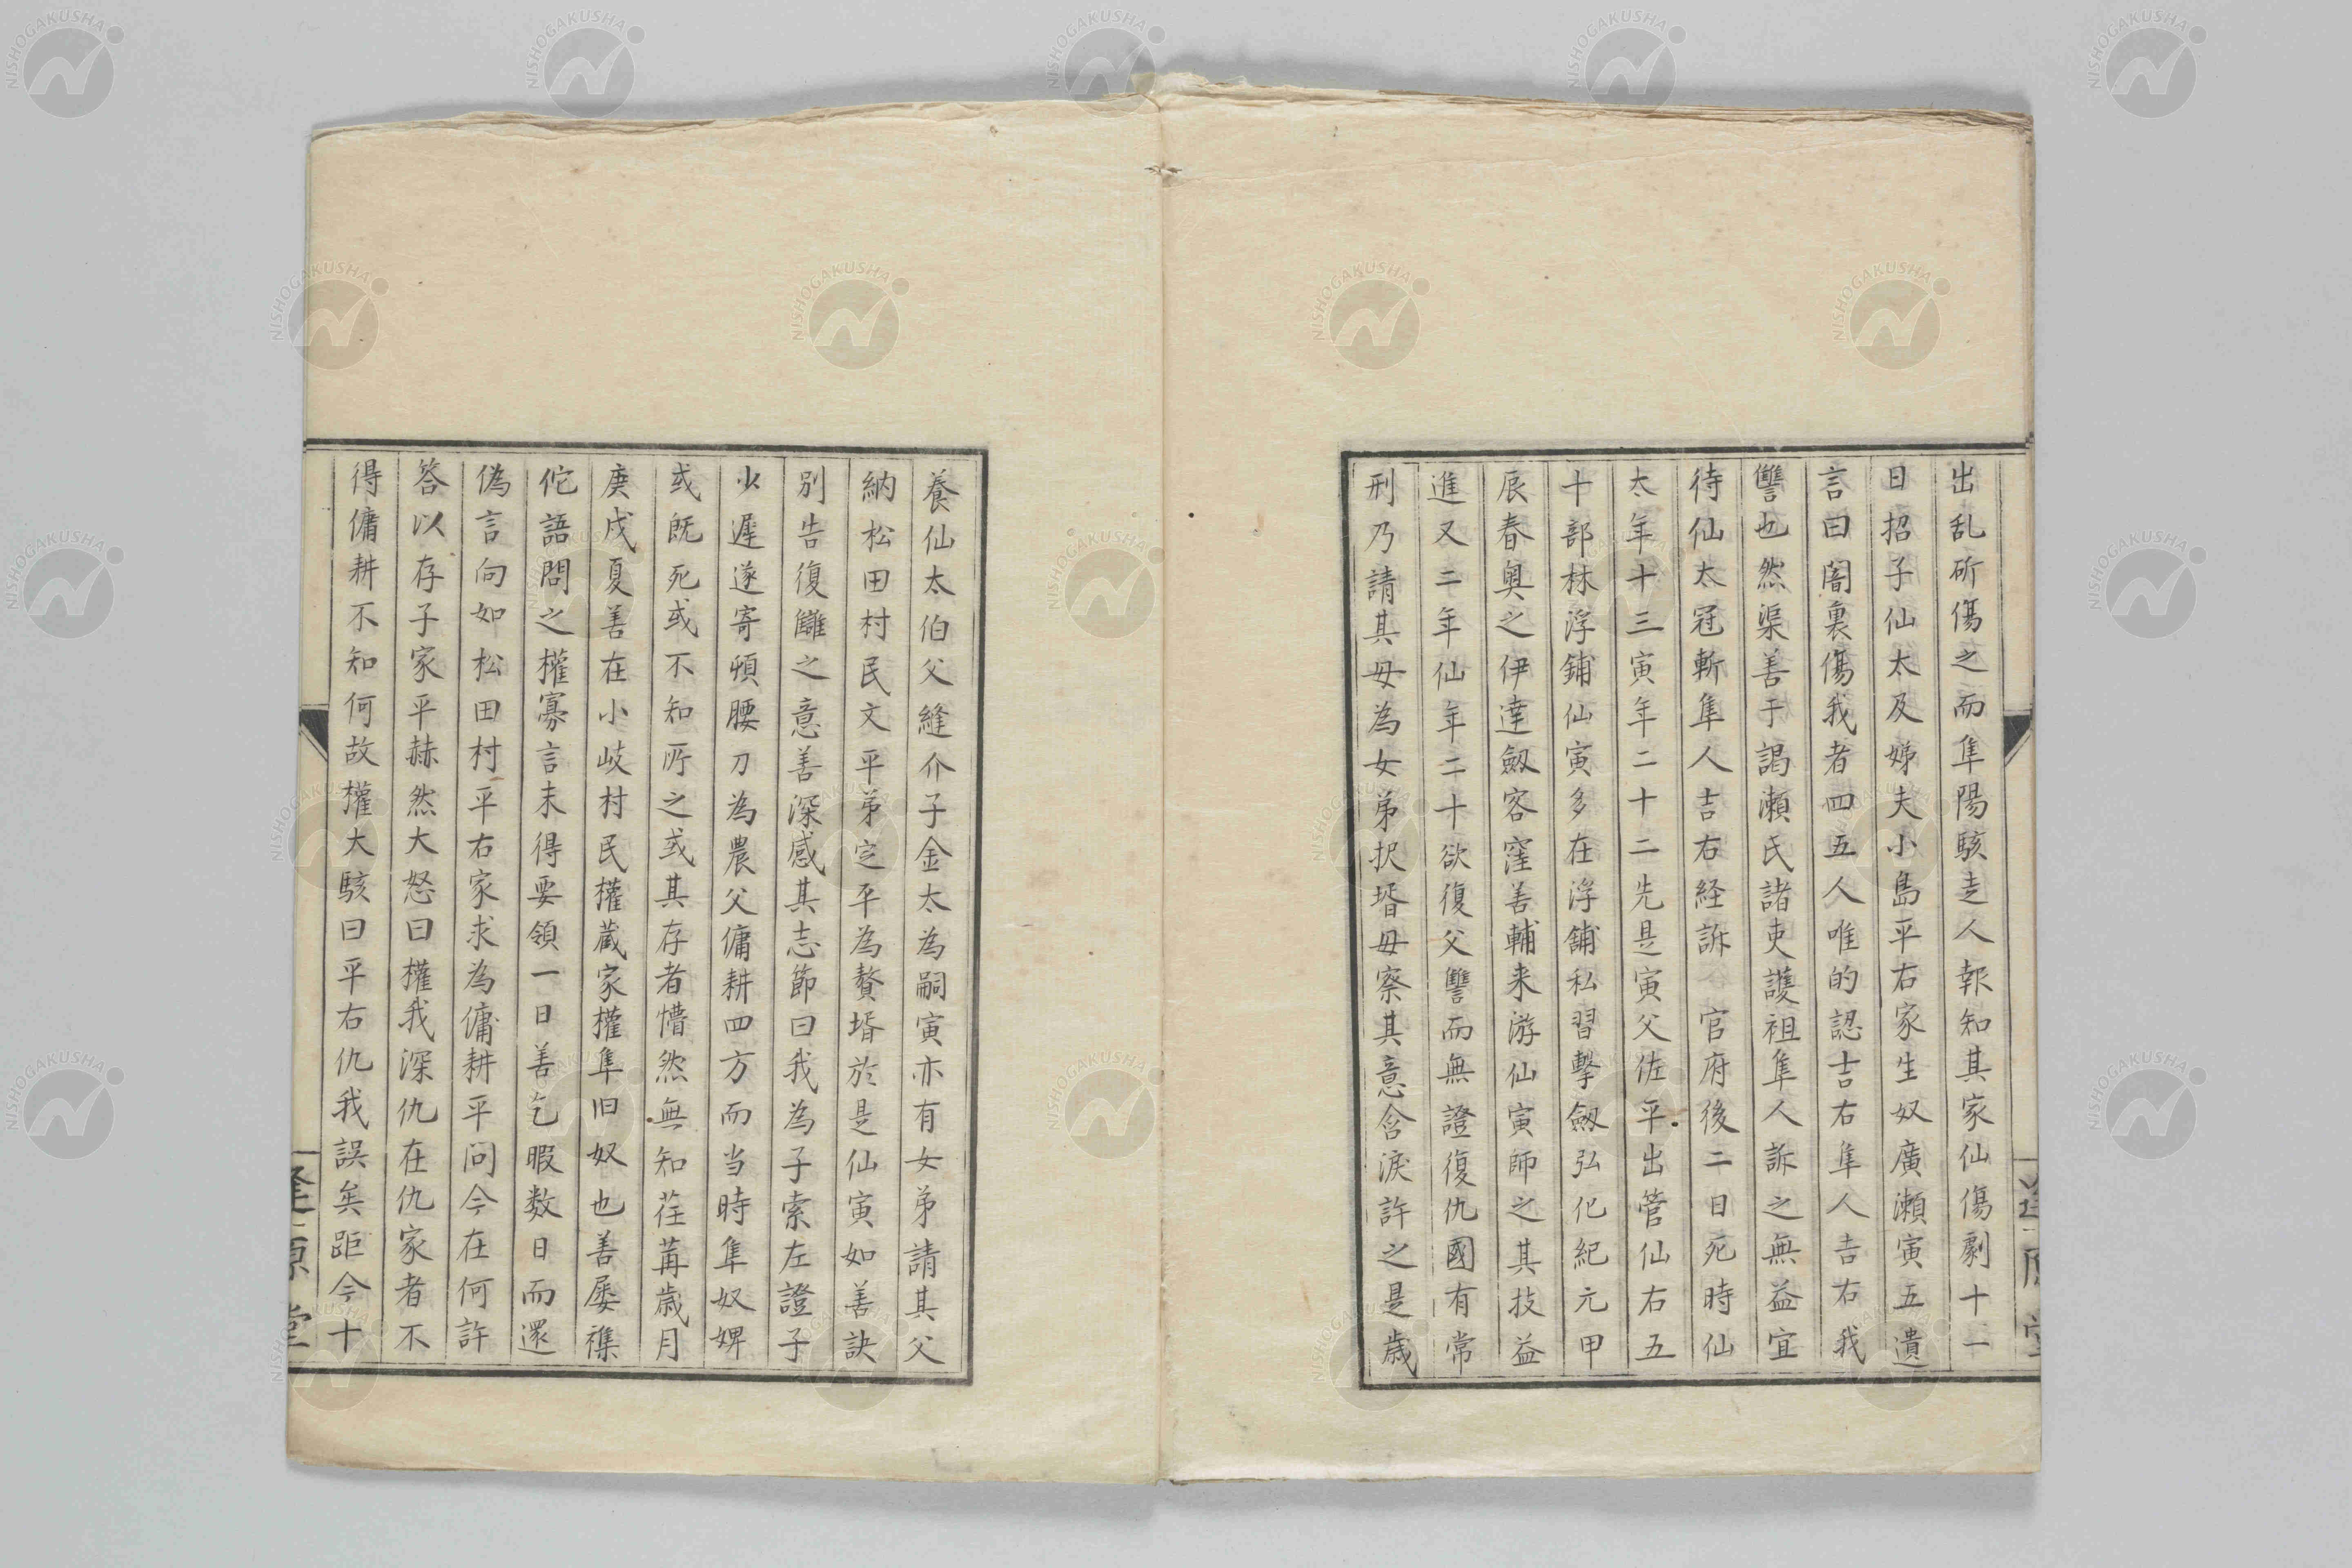 出乱斫傷之而隼陽駭走人報知其家仙傷劇十一
日招子仙太及娣夫小島平右家生奴廣瀬寅五遺
言曰闇裏傷我者四五人唯的認吉右隼人吉右我
讐也然渠善于謁瀬氏諸吏護袒隼人訴之無益宜
待仙太冠斬隼人吉右経訴官府後二日死時仙
太年十三寅年二十二先是寅父佐平出管仙右五
十部林浮鋪仙寅多在浮舗私習擊劔弘化紀元甲
辰春奥之伊達劔客窪善輔来游仙寅師之其技益
進又二年仙年二十欲復父讐而無證復仇國有常
刑乃請其母為女弟択壻母察其意含淚許之是歳
養仙太伯父縫介子金太為嗣寅亦有女弟請其父
納松田村民文平弟定平為贅壻於是仙寅如善訣
別告復讎之意善深感其志節曰我為子索左證子
少遲遂寄頓腰刀為農父傭耕四方而当時隼奴婢
或既死或不知所之或其存者懵然無知荏苒歳月
庚戌夏善在小岐村民權蔵家權隼旧奴也善屡襍
佗語問之權寡言未得要領一日善乞暇数日而還
偽言向如松田村平右家求為傭耕平問今在何許
答以存子家平赫然大怒曰權我深仇在仇家者不
得傭耕不知何故權大駭曰平右仇我誤矣距今十